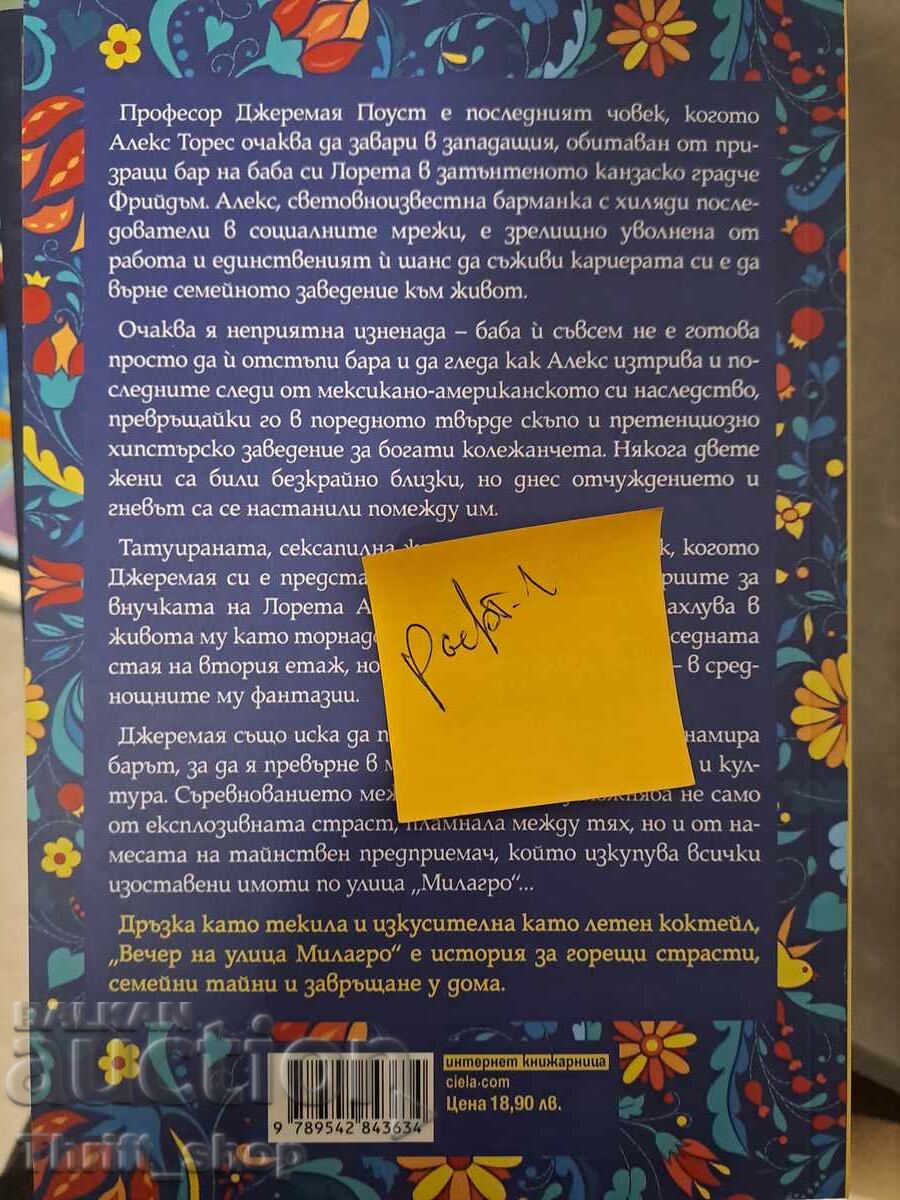 Професор Джеремая Поуст е последният човек, когото
Алекс Торес очаква да завари в западащия, обитаван от при-
зраци бар на баба си Лорета в затънтеното канзаско градче
Фрийдъм. Алекс, световноизвестна барманка с хиляди после-
дователи в социалните мрежи, е зрелищно уволнена от
работа и единственият ѝ шанс да съживи кариерата си е да
върне семейното заведение към живот.
Очаква я неприятна изненада – баба ѝ съвсем не е готова
просто да ѝ отстъпи бара и да гледа как Алекс изтрива и по-
следните следи от мексикано-американското си наследство,
превръщайки го в поредното твърде скъпо и претенциозно
хипстърско заведение за богати колежанчета. Някога двете
жени са били безкрайно близки, но днес отчуждението и
гневът са се настанили помежду им.
Татуираната, сексапилна когото
Джеремая си е за
внучката на Лорета в
живота му като
стая на втория етаж, – в сред-
нощните му фантазии.
Джеремая също иска да намира
барът, за да я превърне в и кул-
тура. Съревнованието не само
от експлозивната страст, пламнала между тях, но и от на-
месата на тайнствен предприемач, който изкупува всички
изоставени имоти по улица „Милагро“...
Дръзка като текила и изкусителна като летен коктейл,
„Вечер на улица Милагро“ е история за горещи страсти,
семейни тайни и завръщане у дома.
BALKAN
auction
интернет книжарница
ciela.com
Цена 18,90 лв.
9 789542 843634
Thrift_shop